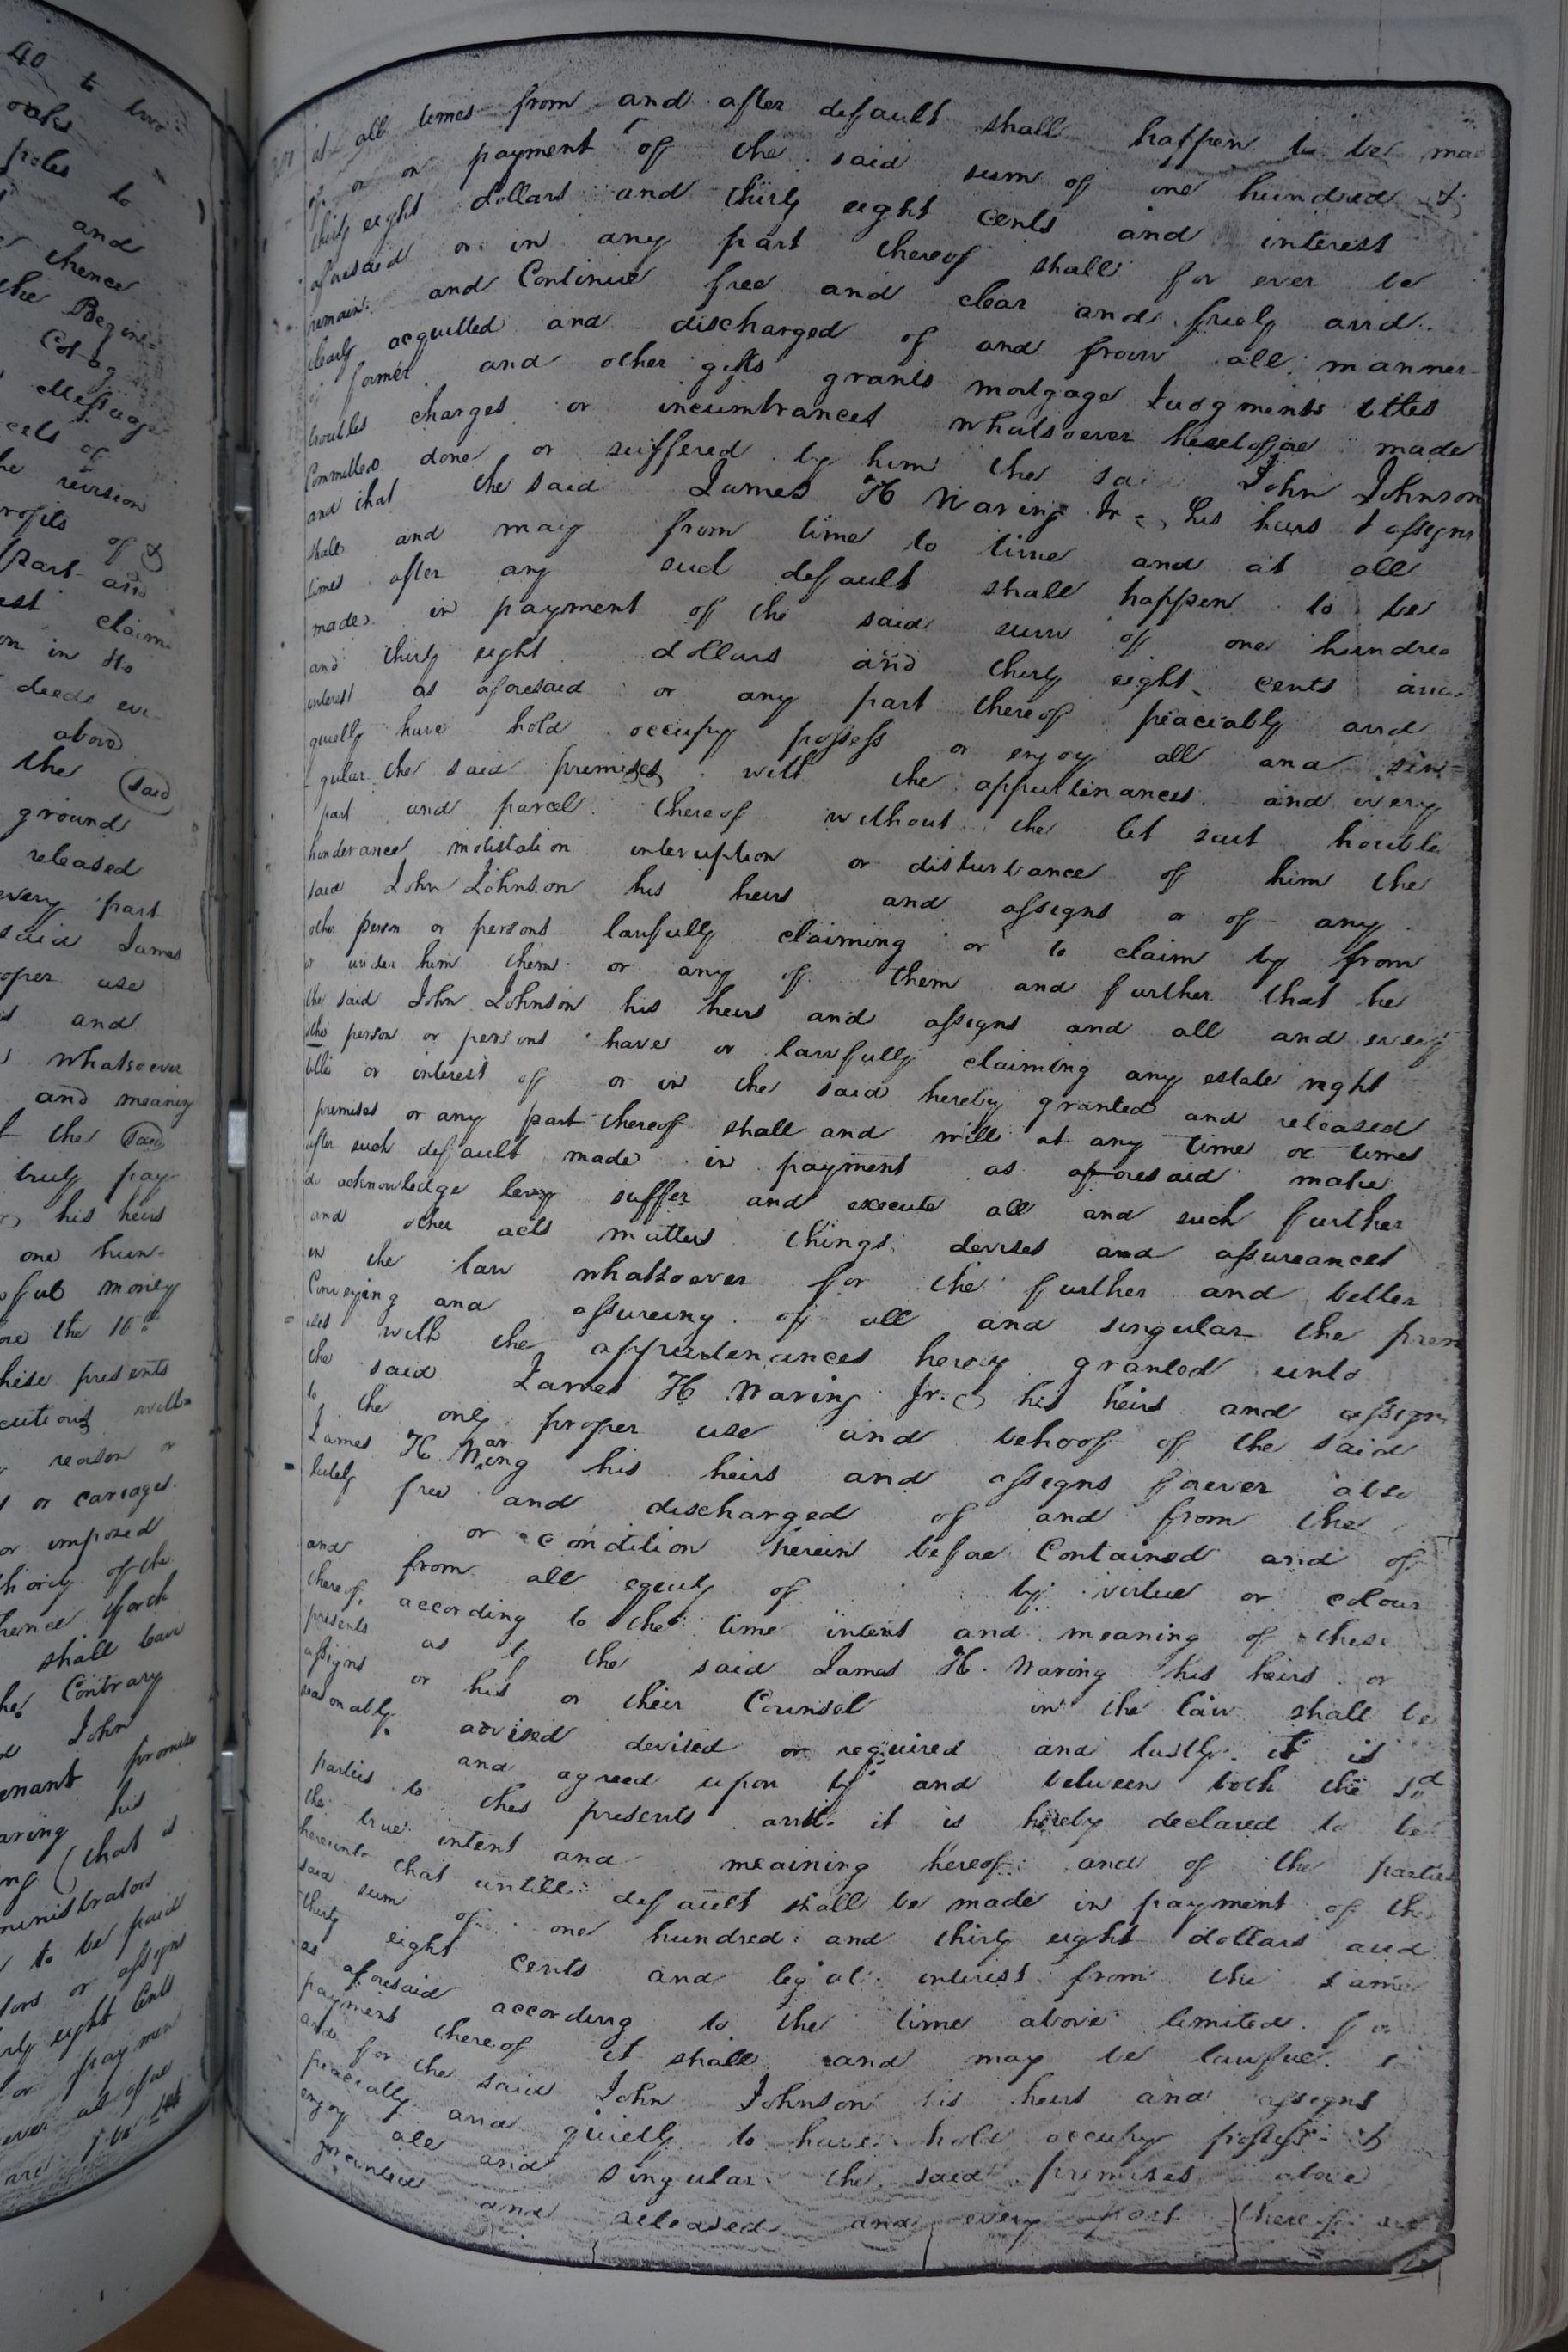 40 to two
oaks
poles to
and
thence
the Begin=
Cot-ag
Messuage
cels of
he revision
rofits of &
part and
est claim
on in the
deeds evi
above
the said
ground
released
every part
said James
oper use
and
whatsoever
and meaning
the said
truly pay
his heirs
one hun-
ful money
the 16th
hese presents
cutions with=
reason or
or cariages
or imposed
thority of the
hence forth
shall bear
he Contrary
John
enant promise
aring his
ng (that is
ministrators
to be paid
tors or assigns
rty eight Cents
or paymen
ever as afore
are
at all times from and after default shall happen to be mad
of or on payment of the said sum of one hundred &
thirty eight dollars and thirty eight cents and interest
aforesaid or in any part thereof shall for ever be
remain and Continue free and clear and freely and
clearly acquitted and discharged of and from all manner
of former and other gifts grants mortgage Judgments titles
troubles charges or incumbrances whatsoever heretofore made
Committed done or suffered by him the sai John Johnson
and that the said James H Waring Jr his heirs & assigns
shall and may from time to time and at all
times after any such default shall happen to be
made in payment of the said sum of one hundred
and thirty eight dollars and thirty eight cents and
interest as aforesaid or any part thereof peaceably and
quietly have hold occupy possess or enjoy all and sin=
-gular the said premises with the appurtinances and every
part and parcel thereof without the let suit trouble
hinderance molistation interuption or disturbance of him the
said John Johnson his heirs and assigns or of any
other person or persons lawfully claiming or to claim by from
or under him them or any of them and further that he
the said John Johnson his heirs and assigns and all and every
other person or persons have or lawfully claiming any estate right
title or interest of or in the said hereby granted and released
premises or any part thereof shall and will at any time or times
after such default made in payment as aforesaid make
do acknowledge levy suffer and execute all and such further
and other acts matters things devises and assureances
in the law whatsoever for the further and better
Conveying and assureing of all and singular the prem
ises with the appurtenances hereby granted unto
the said James H Waring Jr. his heirs and assigns
to the only proper use and behoof of the said
James H Waring his heirs and assigns forever abso
lutely free and discharged of and from the
or condition herein before Contained and of
and from all equity of by virtue or colour
thereof according to the time intent and meaning of these
presents as by the said James H. Waring his heirs or
assigns or his or their Counsel in the law shall be
reasonably advised devised or required and lastly it is
and agreed upon by and between both the sd
parties to thes presents and it is hereby declared to be
the true intent and meaining hereof and of the parties
hereunto that untill default shall be made in payment of the
said sum of one hundred and thirty eight dollars and
thirty eight cents and legal interest from the same
as aforesaid according to the time above limited for
payment thereof it shall and may be lawful to
and for the said John Johnson his heirs and assigns
peacially and quietly to have hold occupy possess &
enjoy all and singular the said premises above
granted and released and every part thereof